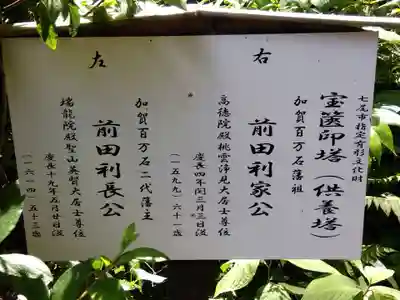 七尾市指定有形文化財
宝篋印塔(供養塔)
右
加賀百万石藩祖
前田利家公
高徳院殿桃雲浄見大居士尊位
慶長四年閏三月三日没
(一五九九)六十一歳
左
加賀百万石二代藩主
前田利長公
瑞龍院殿聖山英賢大居士尊位
慶長十九年五月廿日没
(一六一四)五十三歳